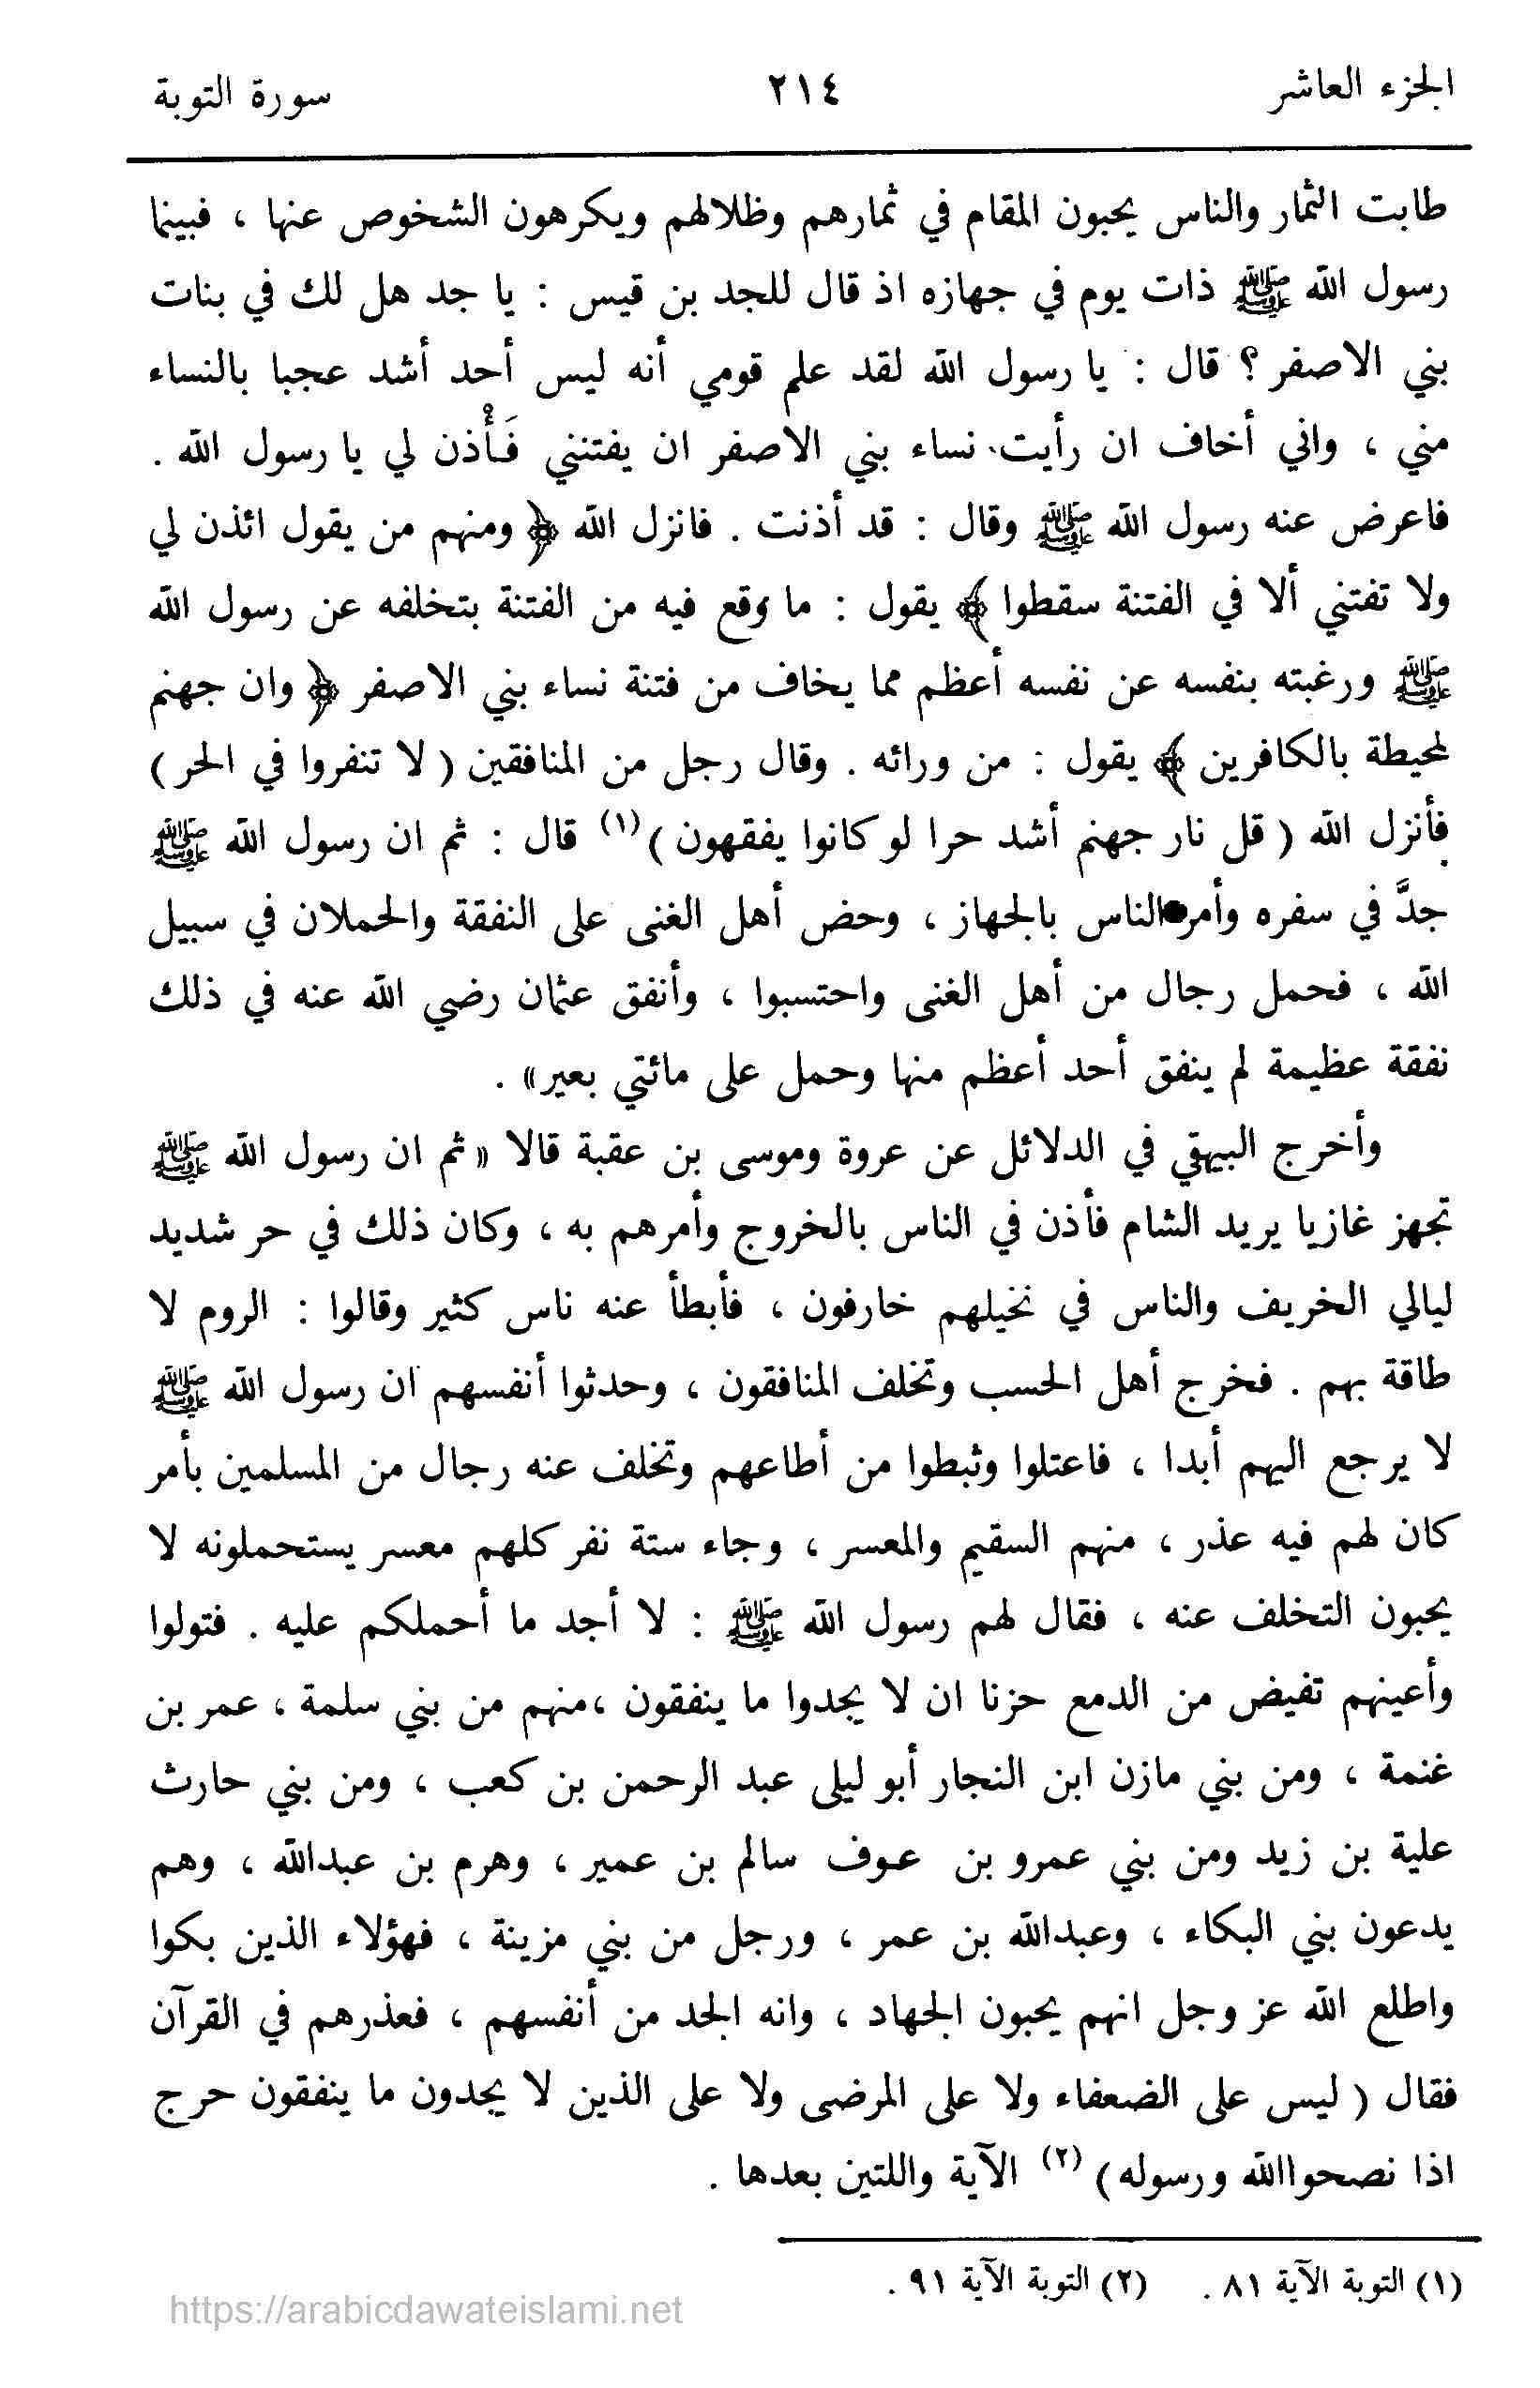 الجزء العاشر ٢١٤ سورة التوبة
طابت الثمار والناس يحبون المقام في ثمارهم وظلالهم ويكرهون الشخوص عنها ، فبينما
رسول الله ﷺ ذات يوم في جهازه اذ قال للجد بن قيس : يا جد هل لك في بنات
بني الاصفر ؟ قال : يا رسول الله لقد علم قومي أنه ليس أحد أشد عجبا بالنساء
مني ، واني أخاف ان رأيت نساء بني الاصفر ان يفتنني فَأْذن لي يا رسول الله .
فاعرض عنه رسول الله ﷺ وقال : قد أذنت . فانزل الله ﴿ ومنهم من يقول ائذن لي
ولا تفتني ألا في الفتنة سقطوا ﴾ يقول : ما وقع فيه من الفتنة بتخلفه عن رسول الله
ﷺ ورغبته بنفسه عن نفسه أعظم مما يخاف من فتنة نساء بني الاصفر ﴿ وان جهنم
لمحيطة بالكافرين ﴾ يقول : من ورائه . وقال رجل من المنافقين ( لا تنفروا في الحر )
فأنزل الله ( قل نار جهنم أشد حرا لو كانوا يفقهون ) (١) قال : ثم ان رسول الله ﷺ
جدَّ في سفره وأمر الناس بالجهاز ، وحض أهل الغنى على النفقة والحملان في سبيل
الله ، فحمل رجال من أهل الغنى واحتسبوا ، وأنفق عثمان رضي الله عنه في ذلك
نفقة عظيمة لم ينفق أحد أعظم منها وحمل على مائتي بعير» .
وأخرج البيهقي في الدلائل عن عروة وموسى بن عقبة قالا « ثم ان رسول الله ﷺ
تجهز غازيا يريد الشام فأذن في الناس بالخروج وأمرهم به ، وكان ذلك في حر شديد
ليالي الخريف والناس في نخيلهم خارفون ، فأبطأ عنه ناس كثير وقالوا : الروم لا
طاقة بهم . فخرج أهل الحسب وتخلف المنافقون ، وحدثوا أنفسهم ان رسول الله ﷺ
لا يرجع اليهم أبدا ، فاعتلوا وثبطوا من أطاعهم وتخلف عنه رجال من المسلمين بأمر
كان لهم فيه عذر ، منهم السقيم والمعسر ، وجاء ستة نفر كلهم معسر يستحملونه لا
يحبون التخلف عنه ، فقال لهم رسول الله ﷺ : لا أجد ما أحملكم عليه . فتولوا
وأعينهم تفيض من الدمع حزنا ان لا يجدوا ما ينفقون ،منهم من بني سلمة ، عمر بن
غنمة ، ومن بني مازن ابن النجار أبو ليلى عبد الرحمن بن كعب ، ومن بني حارث
علية بن زيد ومن بني عمرو بن عوف سالم بن عمير ، وهرم بن عبدالله ، وهم
يدعون بني البكاء ، وعبدالله بن عمر ، ورجل من بني مزينة ، فهؤلاء الذين بكوا
واطلع الله عز وجل انهم يحبون الجهاد ، وانه الجد من أنفسهم ، فعذرهم في القرآن
فقال ( ليس على الضعفاء ولا على المرضى ولا على الذين لا يجدون ما ينفقون حرج
اذا نصحواالله ورسوله ) (٢) الآية واللتين بعدها .
(١) التوبة الآية ٨١ . (٢) التوبة الآية ٩١ .
https://arabicdawateislami.net